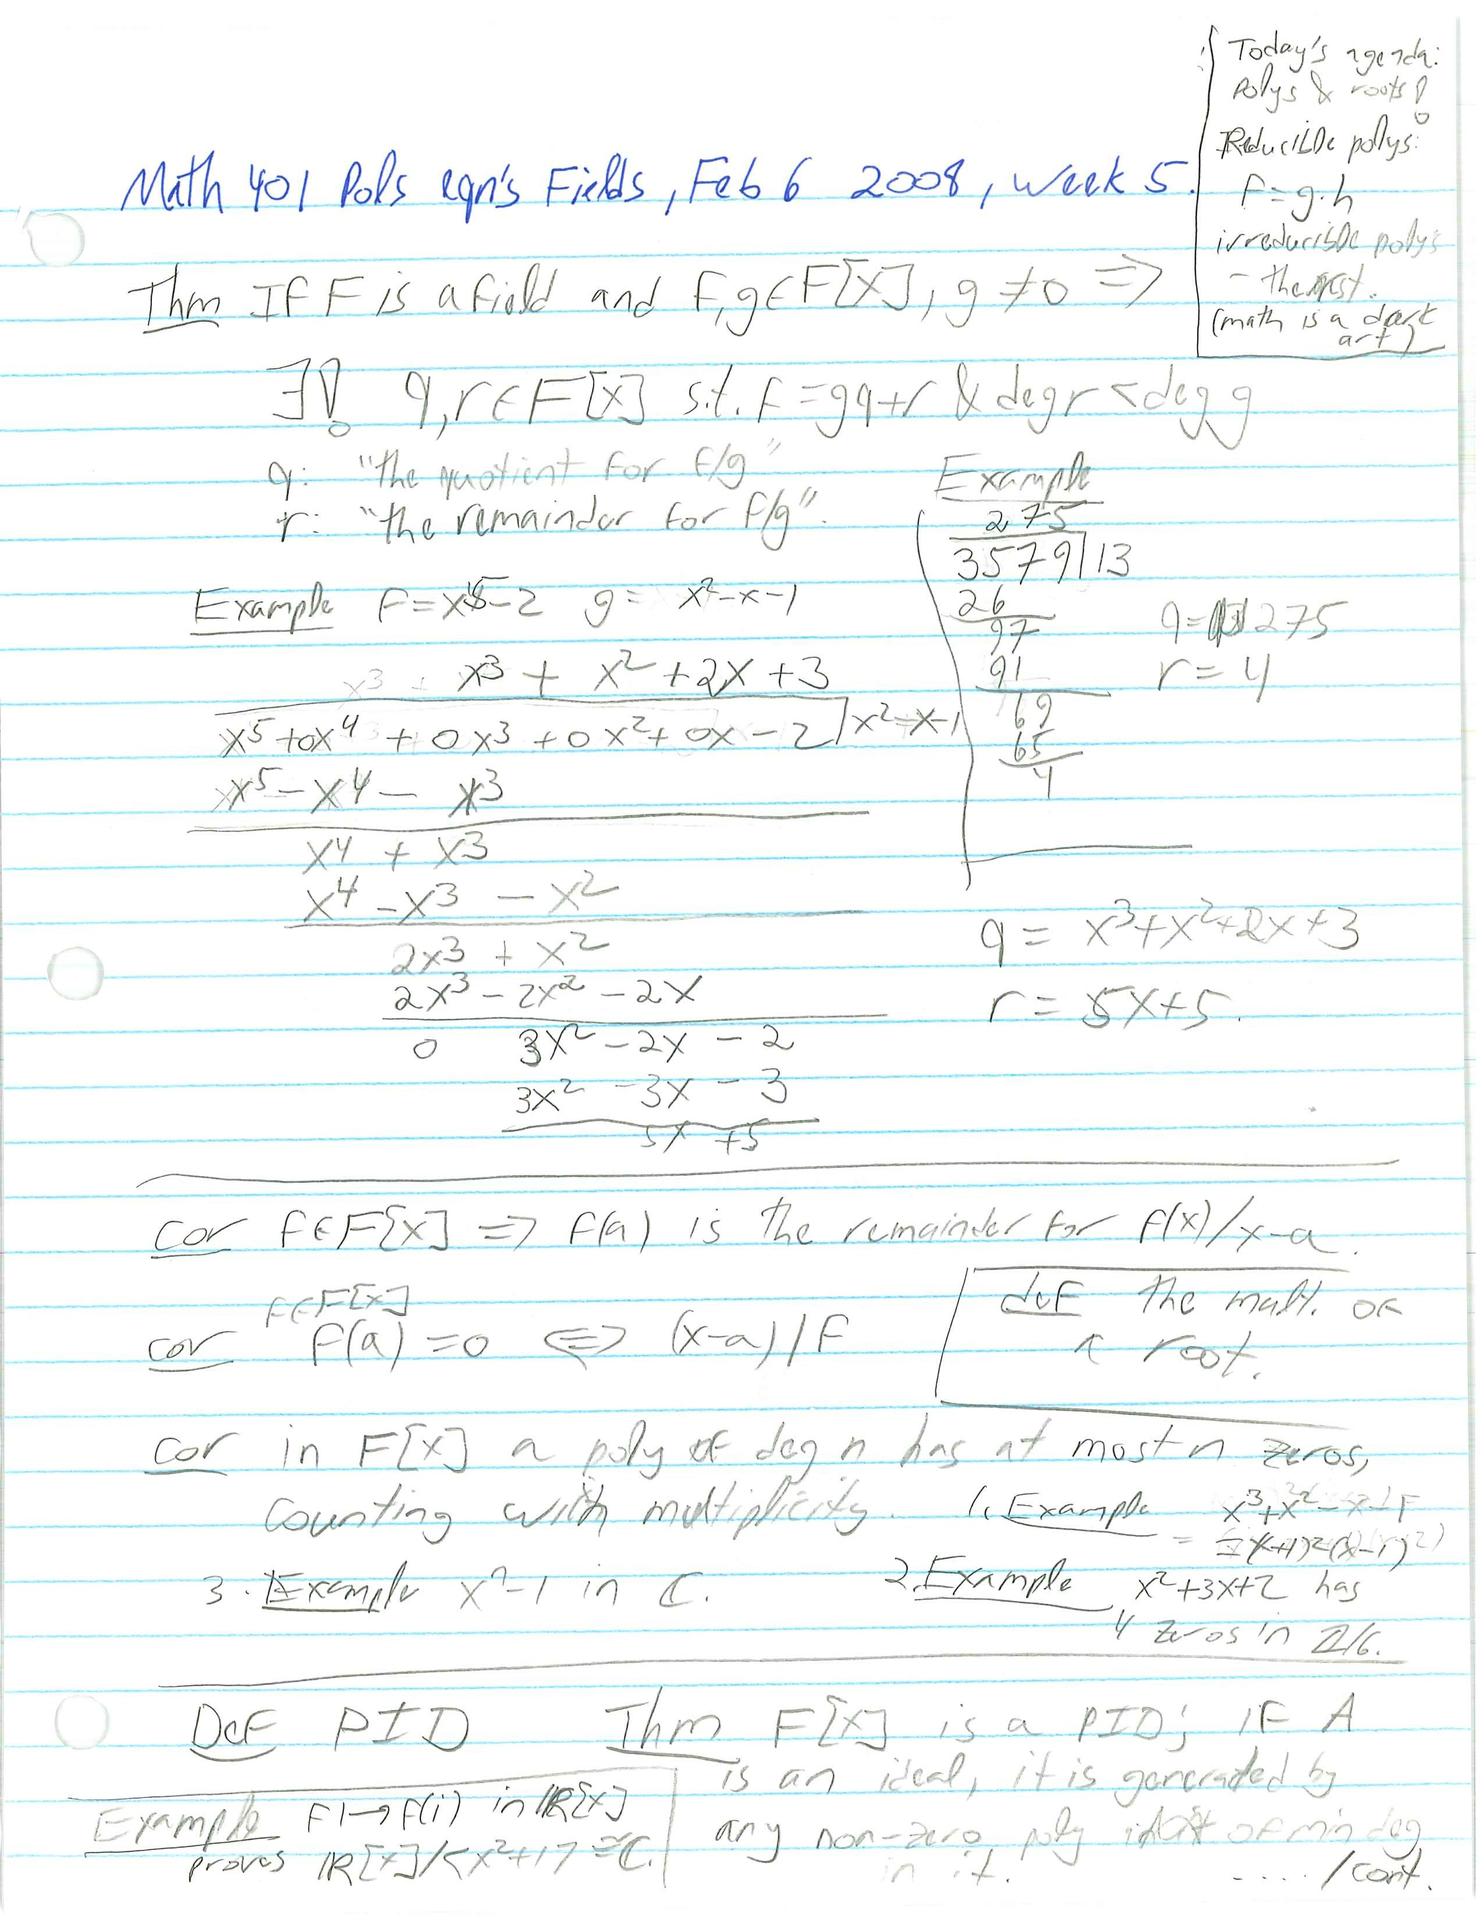 Today's agenda:
Polys & roots!
Reducible polys:
f=g·h
irreducible polys
- the rest.
(math is a dark
art)
Math 401 Pols eqn's Fields, Feb 6 2008, week 5.
Thm If F is a field and f,g∈F[x], g≠0 ⇒
∃! q,r∈F[x] s.t. f=gq+r & deg r<deg g
q: "the quotient for f/g"
r: "the remainder for f/g".
Example
275
3579|13
26
97
91
69
65
4
q=275
r=4
Example f=x⁵-2 g= x²-x-1
x³ + x² +2x +3
x⁵+0x⁴ + 0x³ +0x²+ 0x - 2|x²-x-1
x⁵-x⁴- x³
x⁴ + x³
x⁴ -x³ - x²
2x³ + x²
2x³ - 2x² - 2x
0 3x² -2x - 2
3x² -3x - 3
5x +5
q = x³+x²+2x+3
r = 5x+5.
cor f∈F[x] ⇒ f(a) is the remainder for f(x)/x-a.
f∈F[x]
cor f(a)=0 ⇔ (x-a)|f
def the mult. of
a root.
cor in F[x] a poly of deg n has at most n zeros,
counting with multiplicity.
1. Example x³+x²-x-1
=(x+1)²(x-1)
2. Example x²+3x+2 has
4 zeros in Z/6.
3. Example xⁿ-1 in C.
Def PID Thm F[x] is a PID; if A
is an ideal, it is generated by
any non-zero poly of min deg
in it.
..../cont.
Example f↦f(i) in R[x]
proves R[x]/<x²+1> ≅C.